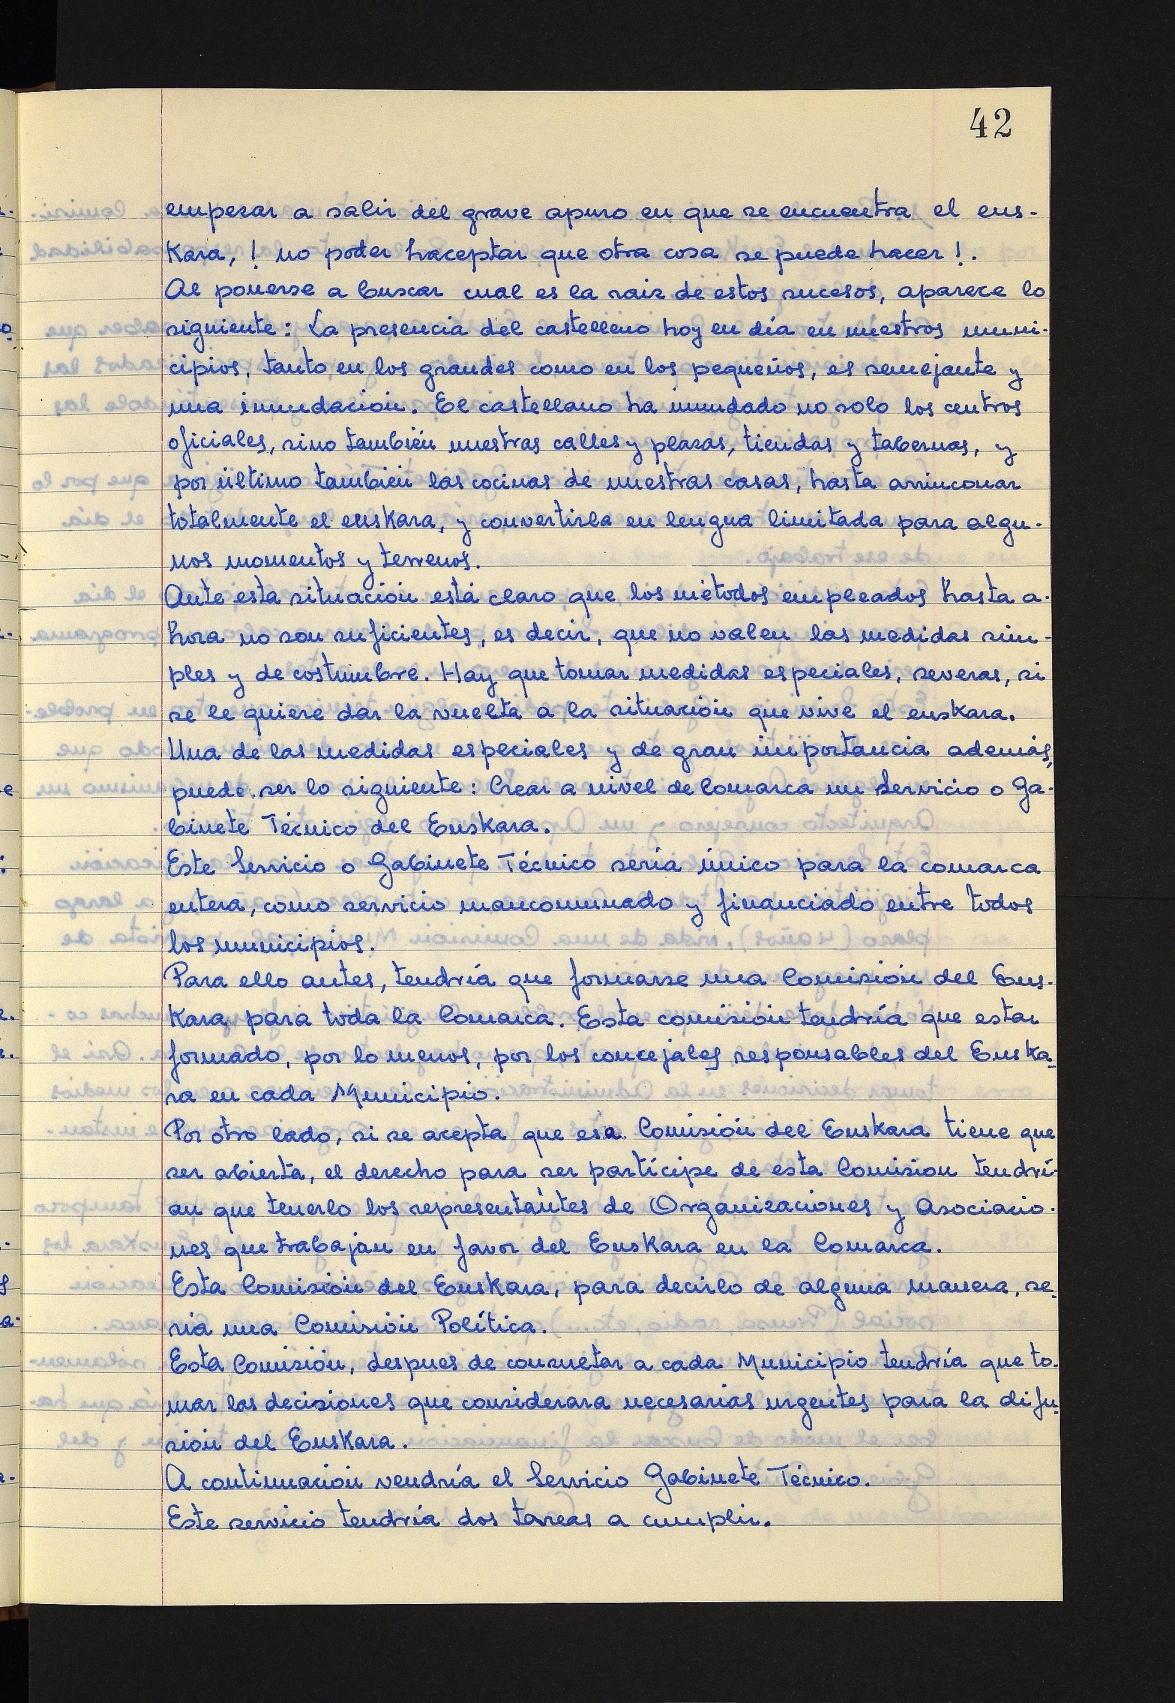 42
empezar a salir del grave apuro en que se encuentra el eus-
kara, ! no poder haceptar que otra cosa se puede hacer !.
Al ponerse a buscar cual es la raiz de estos sucesos, aparece lo
siguiente: La presencia del castelleno hoy en día en nuestros muni-
cipios, tanto en los grandes como en los pequeños, es semejante y
una inundación. El castellano ha inundado no solo los centros
oficiales, sino también nuestras calles y plazas, tiendas y tabernas, y
por último también las cocinas de nuestras casas, hasta arrinconar
totalmente el euskara, y convertirla en lengua limitada para algu-
nos momentos y terrenos.
Ante esta situación está claro, que los métodos empleados hasta a-
hora no son suficientes, es decir, que no valen las medidas sim-
ples y de costumbre. Hay que tomar medidas especiales, severas, si
se le quiere dar la vuelta a la situación que vive el euskara.
Una de las medidas especiales y de gran importancia además,
puede ser lo siguiente: Crear a nivel de Comarca un Servicio o Ga-
binete Técnico del Euskara.
Este Servicio o Gabinete Técnico sería único para la comarca
entera, como servicio mancomunado y financiado entre todos
los municipios.
Para ello antes, tendría que formarse una Comisión del Eus-
kara para toda la Comarca. Esta comisión tendría que estar
formado, por lo menos, por los concejales responsables del Euska-
ra en cada Municipio.
Por otro lado, si se acepta que esa Comisión del Euskara tiene que
ser abierta, el derecho para ser partícipe de esta Comisión tendrí-
an que tenerlo los representantes de Organizaciones y Asociacio-
nes que trabajan en favor del Euskara en la Comarca.
Esta Comisión del Euskara, para decirlo de alguna manera, se-
ria una Comisión Política.
Esta Comisión, despues de consultar a cada Municipio tendría que to-
mar las decisiones que considerara necesarias urgentes para la difu-
sión del Euskara.
A continuación vendría el Servicio Gabinete Técnico.
Este servicio tendría dos tareas a cumplir.